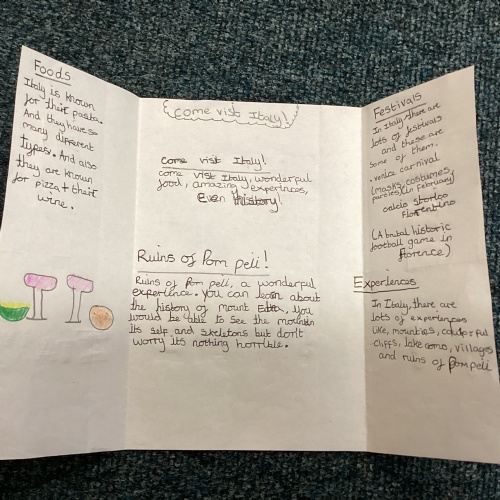 Foods
Italy is known
for their pasta.
And they have so
many different
types. And also
they are known
for pizza + their
wine.
come visit Italy!
Come visit Italy!
come visit Italy, wonderful
food, amazing experinces,
Even History!
Ruins of Pom peii!
Ruins of pom peii, a wonderful
experience. you can learn about
the history of mount Etna, You
would be able to see the mountin
its self and skeletons but don't
worry its nothing horrible.
Festivals
In Italy there are
lots of festivals
and these are
some of them.
. venice carnival
(masks, costumes,
parties, in february)
calcio storico
florentino
(A brutal historic
football game in
florence)
Experiences
In Italy, there are
lots of experiences
like, mounties, colourful
cliffs, lake como, villages
and ruins of pompeii